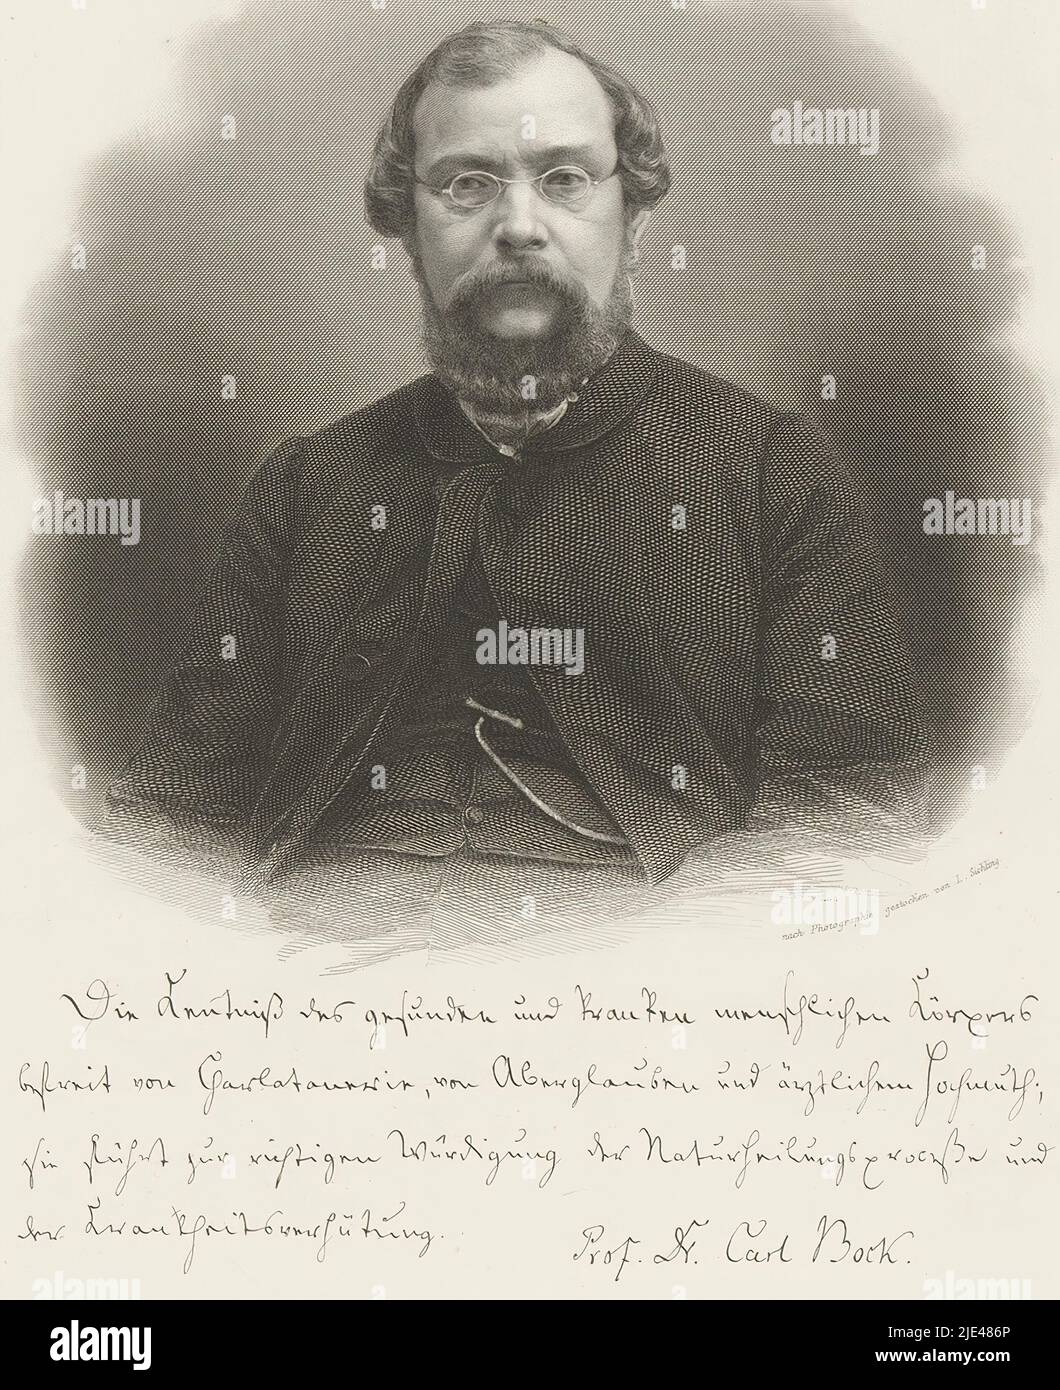 nach Photographie gestochen von L. Sichling.
Die Kentniß des gesunden und kranken menschlichen Körpers
befreit von Charlatanerie, von Aberglauben und ärztlichem Hochmuth;
sie führt zur richtigen Würdigung der Naturheilungsprocesse und
der Krankheitsverhütung.
Prof. Dr. Carl Bock.
alamy
alamy
alamy
alamy
alamy
Image ID: 2JE486P
www.alamy.com